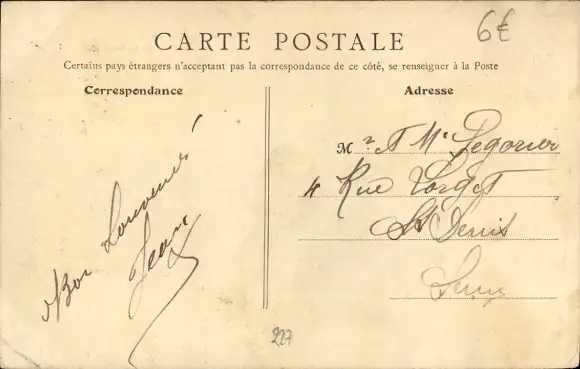 6€
CARTE POSTALE
Certains pays étrangers n'acceptant pas la correspondance de ce côté, se renseigner à la Poste
Correspondance
Adresse
Bon Souvenir
Jean
Mr et Me Legorier
4 Rue
St Denis
Seine
227